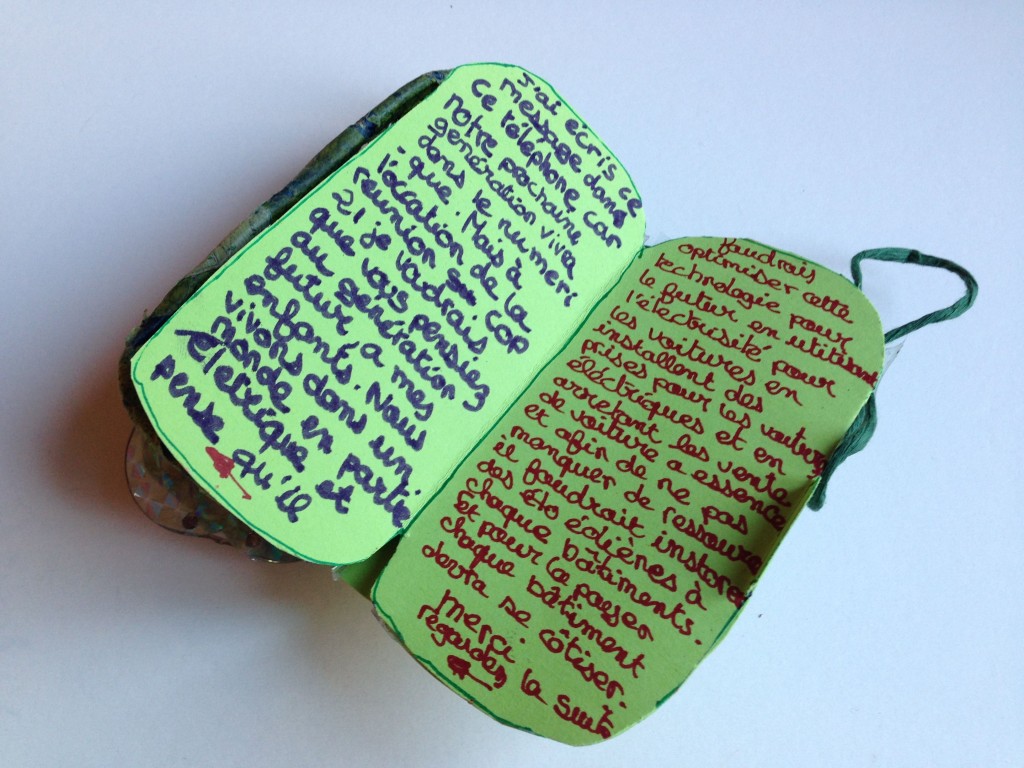 J'ai écris ce
message dans
ce téléphone car
notre prochaine
generation vivra
dans le numeri
que. Mais à
l'occation de la
réunion COP
21 je voudrais
que vous pensiez
au génération
futur à mes
enfants. Nous
vivons dans un
monde en partie
électrique et
pense qu'il
faudrais
optimiser cette
technologie pour
le futur en utilisant
l'électricité pour
les voitures en
installent des
prises pour les voitures
éléctriques et en
arretant les vente
de voiture a essence
et afin de ne pas
manquer de ressource
il faudrait instorer
des Elo édiènes à
chaque bâtiments.
Et pour la payer
chaque bâtiment
devra se côtiser.
Merci
regardez la suite